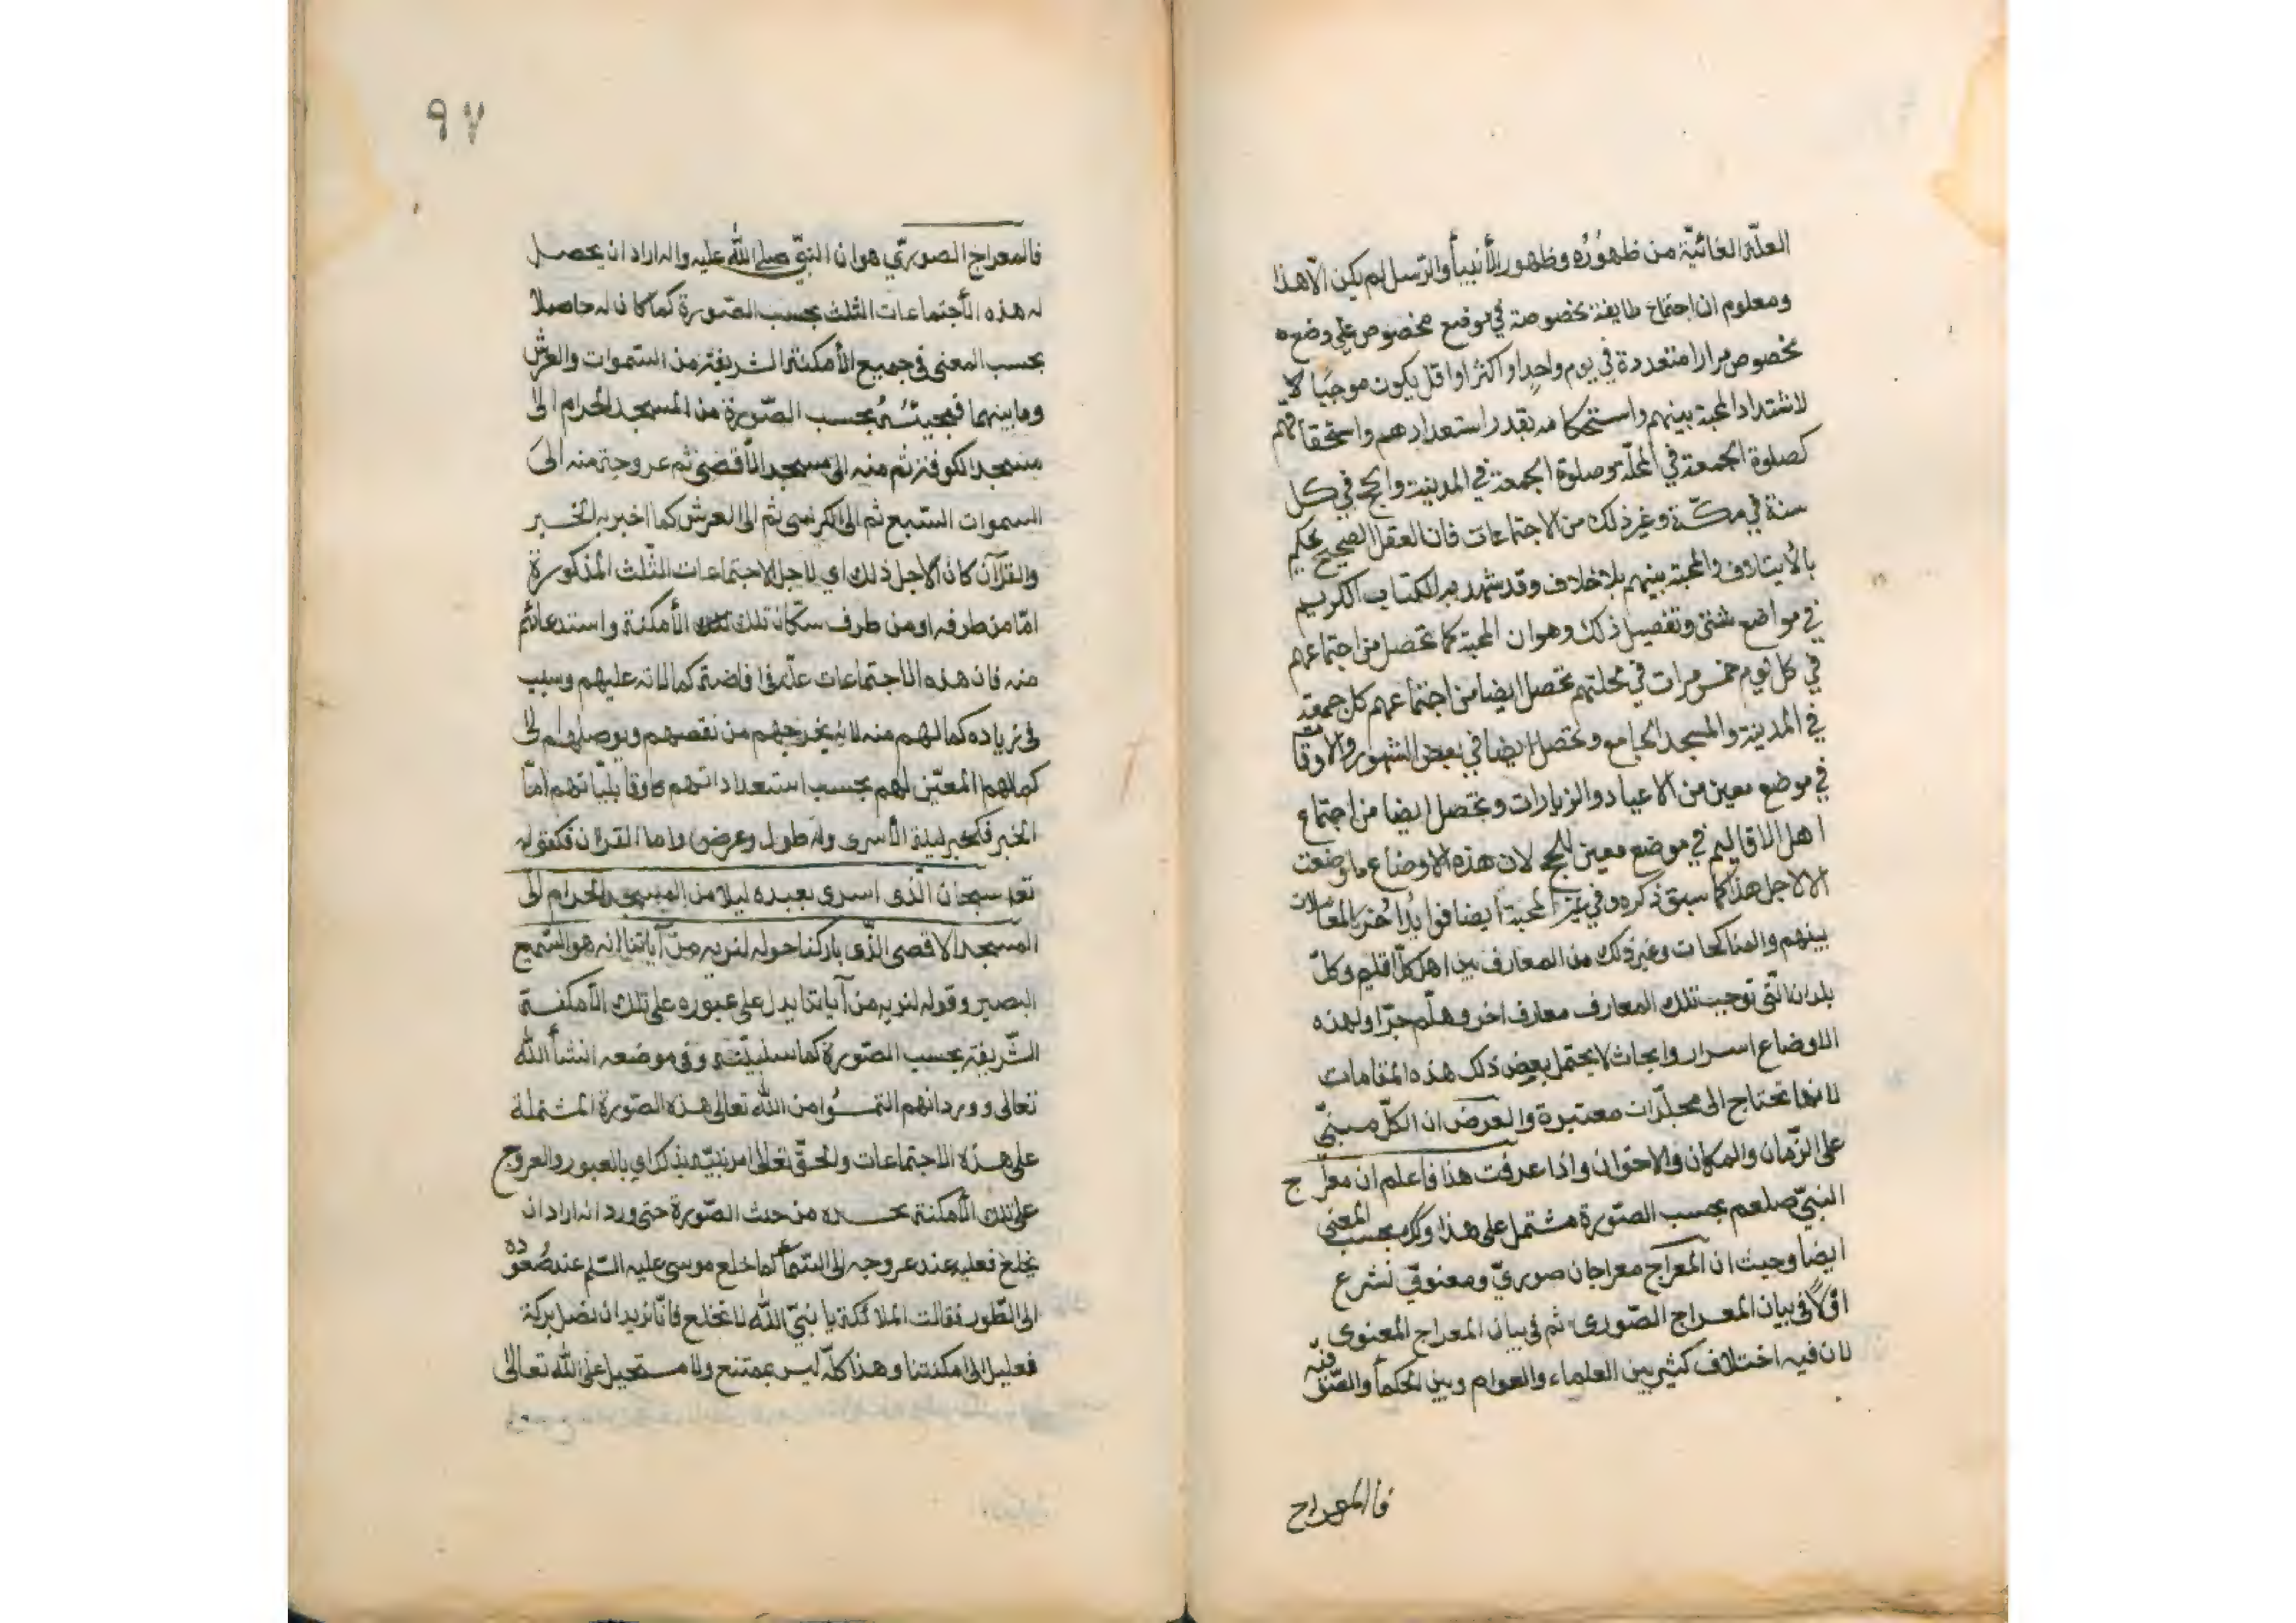 العلّة الغائيّة من ظهوره وظهور الأنبيأ والرّسل لم يكن الّا هذا
ومعلوم ان اجتماع طايفة مخصوصة في موضع مخصوص على وضع
مخصوص مرارا متعددة في يوم واحد او اكثر او اقل يكون موجبا لا
لاشتداد المحبة بينهم واستحكامه بقدر استعدادهم واستحقاقهم
كصلوة الجمعة في المحلّة وصلوة الجمعة في المدينة والحج في كل
سنة في مكّة وغير ذلك من الاجتماعات فان العقل الصحيح يحكم
بالأيتلاف والمحبة بينهم بلا خلاف وقد شهد به الكتاب الكريم
في مواضع شتى وتفصيل ذلك وهو ان المحبة كما تحصل من اجتماعهم
في كل يوم خمس مرات في محلتهم تحصل ايضا من اجتماعهم كل جمعة
في المدينة والمسجد الجامع وتحصل ايضا في بعض الشهور والاوقات
في موضع معين من الاعياد والزيارات وتحصل ايضا من اجتماع
اهل الاقاليم في موضع معين للحج لان هذه الاوضاع ما وضعت
الا لاجل هذا كما سبق ذكره وفي غير المحبة ايضا فوايد أخر كالمعاملات
بينهم والمناكحات وغير ذلك من المعارف بين اهل كلّ اقليم وكلّ
بلدان الّتى توجب تلك المعارف معارف اخر وهلّم جرّا ولهذه
الاوضاع اسرار وابحاث لا يحتمل بعض ذلك هذه المقامات
لانها تحتاج الى مجلّدات معتبرة والغرض ان الكلّ مبنىّ
على الزّمان والمكان والاخوان واذا عرفت هذا فاعلم ان معراج
النبىّ صلعم بحسب الصّورة مشتمل على هذا وكذا بحسب المعنى
ايضا وحيث ان المعراج معراجان صورىّ ومعنوىّ نشرع
اوّلاً فى بيان المعراج الصّورى ثم فى بيان المعراج المعنوى
لان فيه اختلاف كثير بين العلماء والعوام وبين الحكمأ والصّوفيّة
فالمعراج
٩٧
فالمعراج الصورىّ هو ان النبىّ صلى الله عليه واله اراد ان يحصل
له هذه الأجتماعات الثلث بحسب الصّورة كما كان له حاصلا
بحسب المعنى فى جميع الأمكنة الشريفة من السّموات والعرش
وما بينهما فمجيئه بحسب الصّورة من المسجد الحرام الى
مسجد الكوفة ثم منه الى مسجد الأقصى ثم عروجه منه الى
السموات السّبع ثم الى الكرسى ثم الى العرش كما اخبر به الخبر
والقرآن كان لأجل ذلك اى لاجل الاجتماعات الثّلث المذكورة
امّا من طرفه او من طرف سكّان تلك تلك الأمكنة واستدعائهم
منه فان هذه الاجتماعات علّة فى افاضة كمالاته عليهم وسبب
فى زياده كمالهم منه لانه يخرجهم من نقصهم ويوصلهم الى
كمالهم المعيّن لهم بحسب استعداداتهم وقابليّاتهم امّا
الخبر فكخبر ليلة الأسرى وله طول وعرض واما القران فكقوله
تعا سبحان الّذى اسرى بعبده ليلا من المسجد الحرام الى
المسجد الاقصى الّذى باركنا حوله لنريه من آياتنا انه هو السّميع
البصير وقوله لنريه من آياتنا يدل على عبوره على تلك الأمكنة
الشّريفة بحسب الصّورة كما سنبيّنه وفى موضعه انشأ الله
تعالى وورد انهم التمسوا من الله تعالى هذه الصّورة المشتملة
على هذه الاجتماعات والحقّ تعالى امر نبيّه بذلك اى بالعبور والعروج
على تلك الأمكنة بجسده من حيث الصّورة حتى ورد انه اراد ان
يخلع نعليه عند عروجه الى السّمأ كما خلع موسى عليه السّلم عند صُعوده
الى الطّور فقالت الملائكة يا نبىّ الله لا تخلع فانّا نريد ان تصل بركة
نعليك الى امكنتنا وهذا كلّه ليس بممتنع ولا مستحيل على الله تعالى